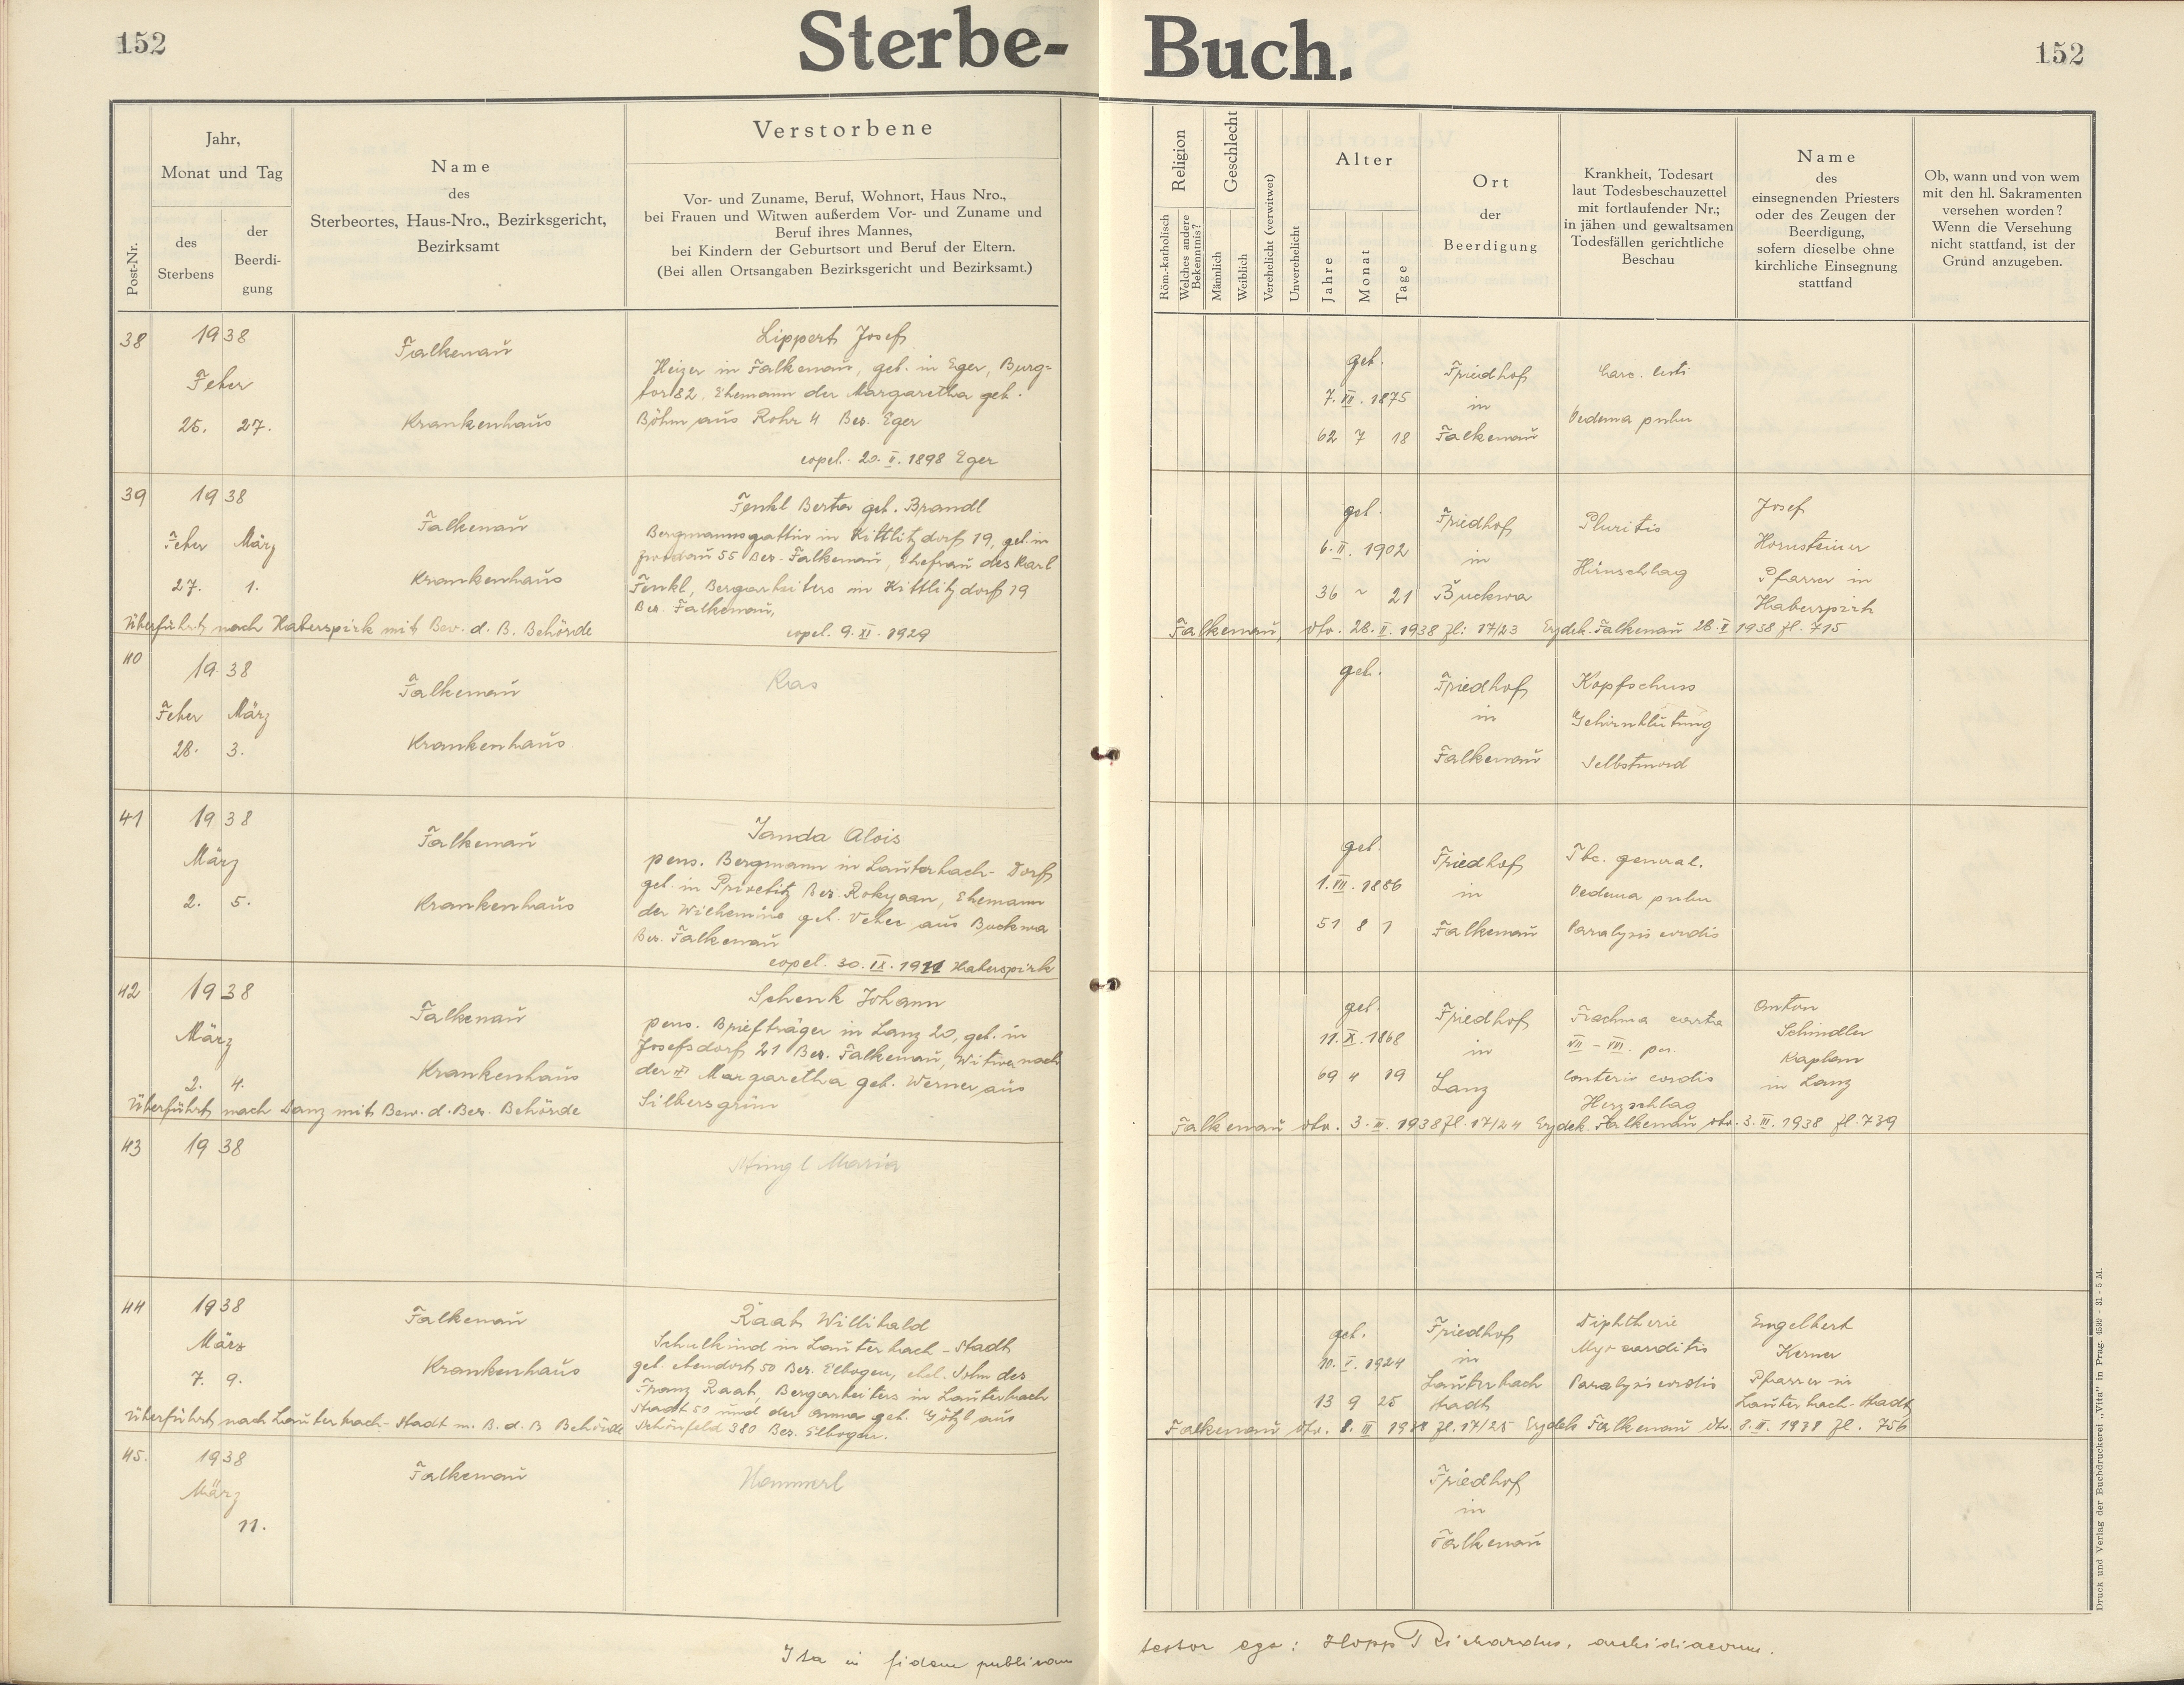 152
Sterbe-
Buch.
152
Post-Nr.
Jahr,
Monat und Tag
des
Sterbens
der
Beerdi-
gung
Name
des
Sterbeortes, Haus-Nro., Bezirksgericht,
Bezirksamt
Verstorbene
Vor- und Zuname, Beruf, Wohnort, Haus Nro.,
bei Frauen und Witwen außerdem Vor- und Zuname und
Beruf ihres Mannes,
bei Kindern der Geburtsort und Beruf der Eltern.
(Bei allen Ortsangaben Bezirksgericht und Bezirksamt.)
Religion
Röm.-katholisch
Welches andere
Bekenntnis?
Geschlecht
Männlich
Weiblich
Verehelicht (verwitwet)
Unverehelicht
Alter
Jahre
Monat
Tage
Ort
der
Beerdigung
Krankheit, Todesart
laut Todesbeschauzettel
mit fortlaufender Nr.;
in jähen und gewaltsamen
Todesfällen gerichtliche
Beschau
Name
des
einsegnenden Priesters
oder des Zeugen der
Beerdigung,
sofern dieselbe ohne
kirchliche Einsegnung
stattfand
Ob, wann und von wem
mit den hl. Sakramenten
versehen worden?
Wenn die Versehung
nicht stattfand, ist der
Grund anzugeben.
38
1938
Feber
25. 27.
Falkenau
Krankenhaus
Lippert Josef
Heizer in Falkenau, geb. in Eger, Burg=
tor 82, Ehemann der Margaretha geb.
Böhm aus Rohr 4 Bez. Eger
copul. 20. II. 1898 Eger
geb.
7. VII. 1875
62 7 18
Friedhof
in
Falkenau
Oedema pulm
39
1938
Feber März
27. 1.
Falkenau
Krankenhaus
Überführt nach Haberspirk mit Bew. d. B. Behörde
Fenkl Berta geb. Brandl
Bergmannsgattin in Kittlitzdorf 19, geb. in
Zwodau 55 Bez. Falkenau, Ehefrau des Karl
Fenkl, Bergarbeiters in Kittlitzdorf 19
Bez. Falkenau,
copul. 9. XI. 1929
geb.
6. II. 1902
36 ~ 21
Friedhof
in
Buckwa
Pluritis
Hirnschlag
Josef
Hornsteiner
Pfarrer in
Haberspirk
Falkenau, dto. 28. II. 1938 Zl: 17/23 Erzdek. Falkenau 28. II 1938 Zl. 715
40
1938
Feber März
28. 3.
Falkenau
Krankenhaus
Ras
geb.
Friedhof
in
Falkenau
Kopfschuss
Gehirnblutung
Selbstmord
41
1938
März
2. 5.
Falkenau
Krankenhaus
Janda Alois
pens. Bergmann in Lauterbach-Dorf
geb. in Privetitz Bez. Rokyzan, Ehemann
der Wilhemine geb. Veber aus Buckwa
Bez. Falkenau
copul. 30. IX. 1911 Haberspirk
geb.
1. VII. 1886
51 8 1
Friedhof
in
Falkenau
Tbc. general.
Oedema pulm
Paralysis cordis
42
1938
März
2. 4.
Falkenau
Krankenhaus
Überführt nach Lanz mit Bew. d. Bez. Behörde
Schenk Johann
pens. Briefträger in Lanz 20, geb. in
Josefsdorf 21 Bez. Falkenau, Witwer nach
der Margaretha geb. Werner aus
Silbersgrün
geb.
11. X. 1868
69 4 19
Friedhof
in
Lanz
VII - VIII.
cordis
Herzschlag
Anton
Schindler
Kaplan
in Lanz
Falkenau dto. 3. III. 1938 Zl. 17/24 Erzdek. Falkenau dto. 3. III. 1938 Zl. 739
43
1938
Stingl Maria
44
1938
März
7. 9.
Falkenau
Krankenhaus
Überführt nach Lauterbach-Stadt m. B. d. B Behörde
Raab Willibald
Schulkind in Lauterbach-Stadt
geb. ebendort 50 Bez. Elbogen, ehel. Sohn des
Franz Raab, Bergarbeiters in Lauterbach
Stadt 50 und der Anna geb. Götzl aus
Schönfeld 380 Bez. Elbogen.
geb.
10. V. 1924
13 9 25
Friedhof
in
Lauterbach
Stadt
Diphtherie
Myocarditis
Paralysis cordis
Engelbert
Kerner
Pfarrer in
Lauterbach-Stadt
Falkenau dto. 8. III 1938 Zl. 17/25 Erzdek Falkenau dto. 8. III. 1938 Zl. 756
45.
1938
März
11.
Falkenau
Hammerl
Friedhof
in
Falkenau
Ita in fidem publicam
testor ego: Hopp Richardus, archidiaconus.
Druck und Verlag der Buchdruckerei „Vita" in Prag. 4599 - 31 - 5 M.